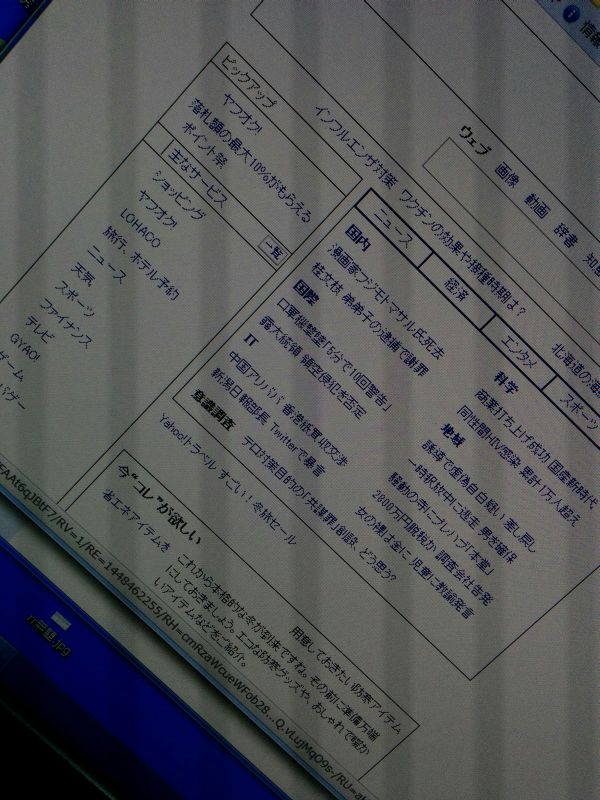 情報
ウェブ 画像 動画 辞書 知恵
インフルエンザ対策 ワクチンの効果や接種時期は? 北海道の海
ピックアップ
ヤフオク!
落札額の最大10%がもらえる
ポイント祭
主なサービス
一覧
ショッピング
ヤフオク!
LOHACO
旅行、ホテル予約
ニュース
天気
スポーツ
ファイナンス
テレビ
GYAO!
ゲーム
バゲー
ニュース
経済
エンタメ
スポーツ
国内
漫画家フジモトマサル氏死去
桂文枝 弟弟子の逮捕で謝罪
国際
ロ軍機撃墜「5分で10回警告」
露大統領 領空侵犯を否定
IT
中国アリババ 香港紙買収交渉
新潟日報部長 Twitterで暴言
科学
商業打ち上げ成功 国産新時代
同性間HIV感染 累計1万人超え
地域
誘導で虚偽自白疑い 差し戻し
一時釈放中に逃走 男を確保
騒動の寺にプレハブ「本堂」
2800万円脱税か 調査会社告発
女の裸は金に 児童に教諭発言
意識調査
テロ対策目的の「共謀罪」創設、どう思う?
Yahoo!トラベル すごい!冬旅セール
今"コレ"が欲しい
省エネアイテムを
用意しておきたい防寒アイテム
これから本格的な冬が到来ですね。その前に準備万端
にしておきましょう。エコな防寒グッズや、おしゃれで暖か
いアイテムなどをご紹介。
FAAt6qJBtF7/RV=1/RE=1448462255/RH=cmRzaWcueWFob28...Q.vLuJMqO9s-/RU=a